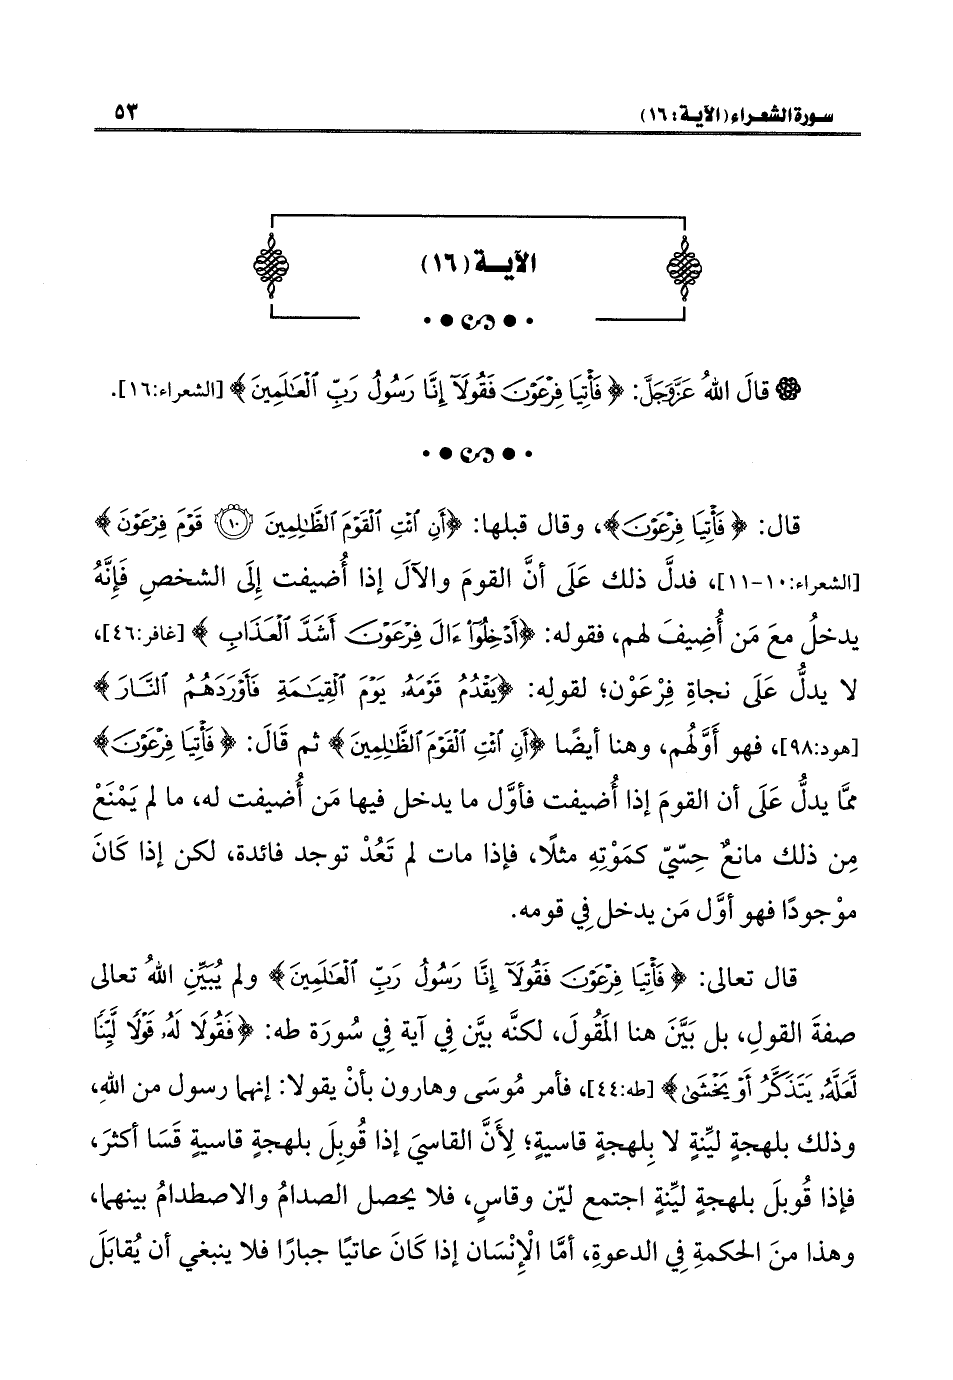 سورة الشعراء (الآية: ١٦)
٥٣
الآيــة (١٦)
قالَ اللهُ عَزَّوَجَلَّ: ﴿فَأْتِيَا فِرْعَوْنَ فَقُولَا إِنَّا رَسُولُ رَبِّ الْعَالَمِينَ﴾ [الشعراء:١٦].
قال: ﴿فَأْتِيَا فِرْعَوْنَ﴾، وقال قبلها: ﴿أَنِ ائْتِ الْقَوْمَ الظَّالِمِينَ ١٠ قَوْمَ فِرْعَوْنَ﴾
[الشعراء:١٠-١١]، فدلَّ ذلك عَلَى أنَّ القومَ والآلَ إذا أُضيفت إلَى الشخصِ فَإِنَّهُ
يدخلُ معَ مَن أُضِيفَ لهم، فقوله: ﴿أَدْخِلُوا ءَالَ فِرْعَوْنَ أَشَدَّ الْعَذَابِ﴾ [غافر:٤٦]،
لا يدلُّ عَلَى نجاةِ فِرْعَوْن؛ لقولِه: ﴿يَقْدُمُ قَوْمَهُ يَوْمَ الْقِيَامَةِ فَأَوْرَدَهُمُ النَّارَ﴾
[هود:٩٨]، فهو أوَّلُهم، وهنا أيضًا ﴿أَنِ ائْتِ الْقَوْمَ الظَّالِمِينَ﴾ ثم قَالَ: ﴿فَأْتِيَا فِرْعَوْنَ﴾
ممَّا يدلُّ عَلَى أن القومَ إذا أُضيفت فأوَّل ما يدخل فيها مَن أُضيفت له، ما لم يَمْنَعْ
مِن ذلك مانعٌ حِسِّيّ كمَوْتِهِ مثلًا، فإذا مات لم تَعُدْ توجد فائدة، لكن إذا كَانَ
موْجودًا فهو أوَّل مَن يدخل فِي قومه.
قال تعالى: ﴿فَأْتِيَا فِرْعَوْنَ فَقُولَا إِنَّا رَسُولُ رَبِّ الْعَالَمِينَ﴾ ولم يُبَيِّنِ اللهُ تعالى
صفةَ القولِ، بل بَيَّنَ هنا المَقُولَ، لكنَّه بيَّن فِي آية فِي سُورَة طه: ﴿فَقُولَا لَهُ قَوْلًا لَيِّنًا
لَعَلَّهُ يَتَذَكَّرُ أَوْ يَخْشَى﴾ [طه:٤٤]، فأمر مُوسَى وهارون بأنْ يقولا: إنهما رسول من اللهِ،
وذلك بلهجةٍ ليِّنةٍ لا بِلهجةٍ قاسيةٍ؛ لِأَنَّ القاسيَ إذا قُوبِلَ بلهجةٍ قاسيةٍ قَسَا أكثرَ،
فإذا قُوبلَ بلهجةٍ ليِّنةٍ اجتمع ليّن وقاسٍ، فلا يحصل الصدامُ والاصطدامُ بينهما،
وهذا منَ الحكمةِ فِي الدعوةِ، أمَّا الْإِنْسَان إذا كَانَ عاتيًا جبارًا فلا ينبغي أن يُقابَلَ